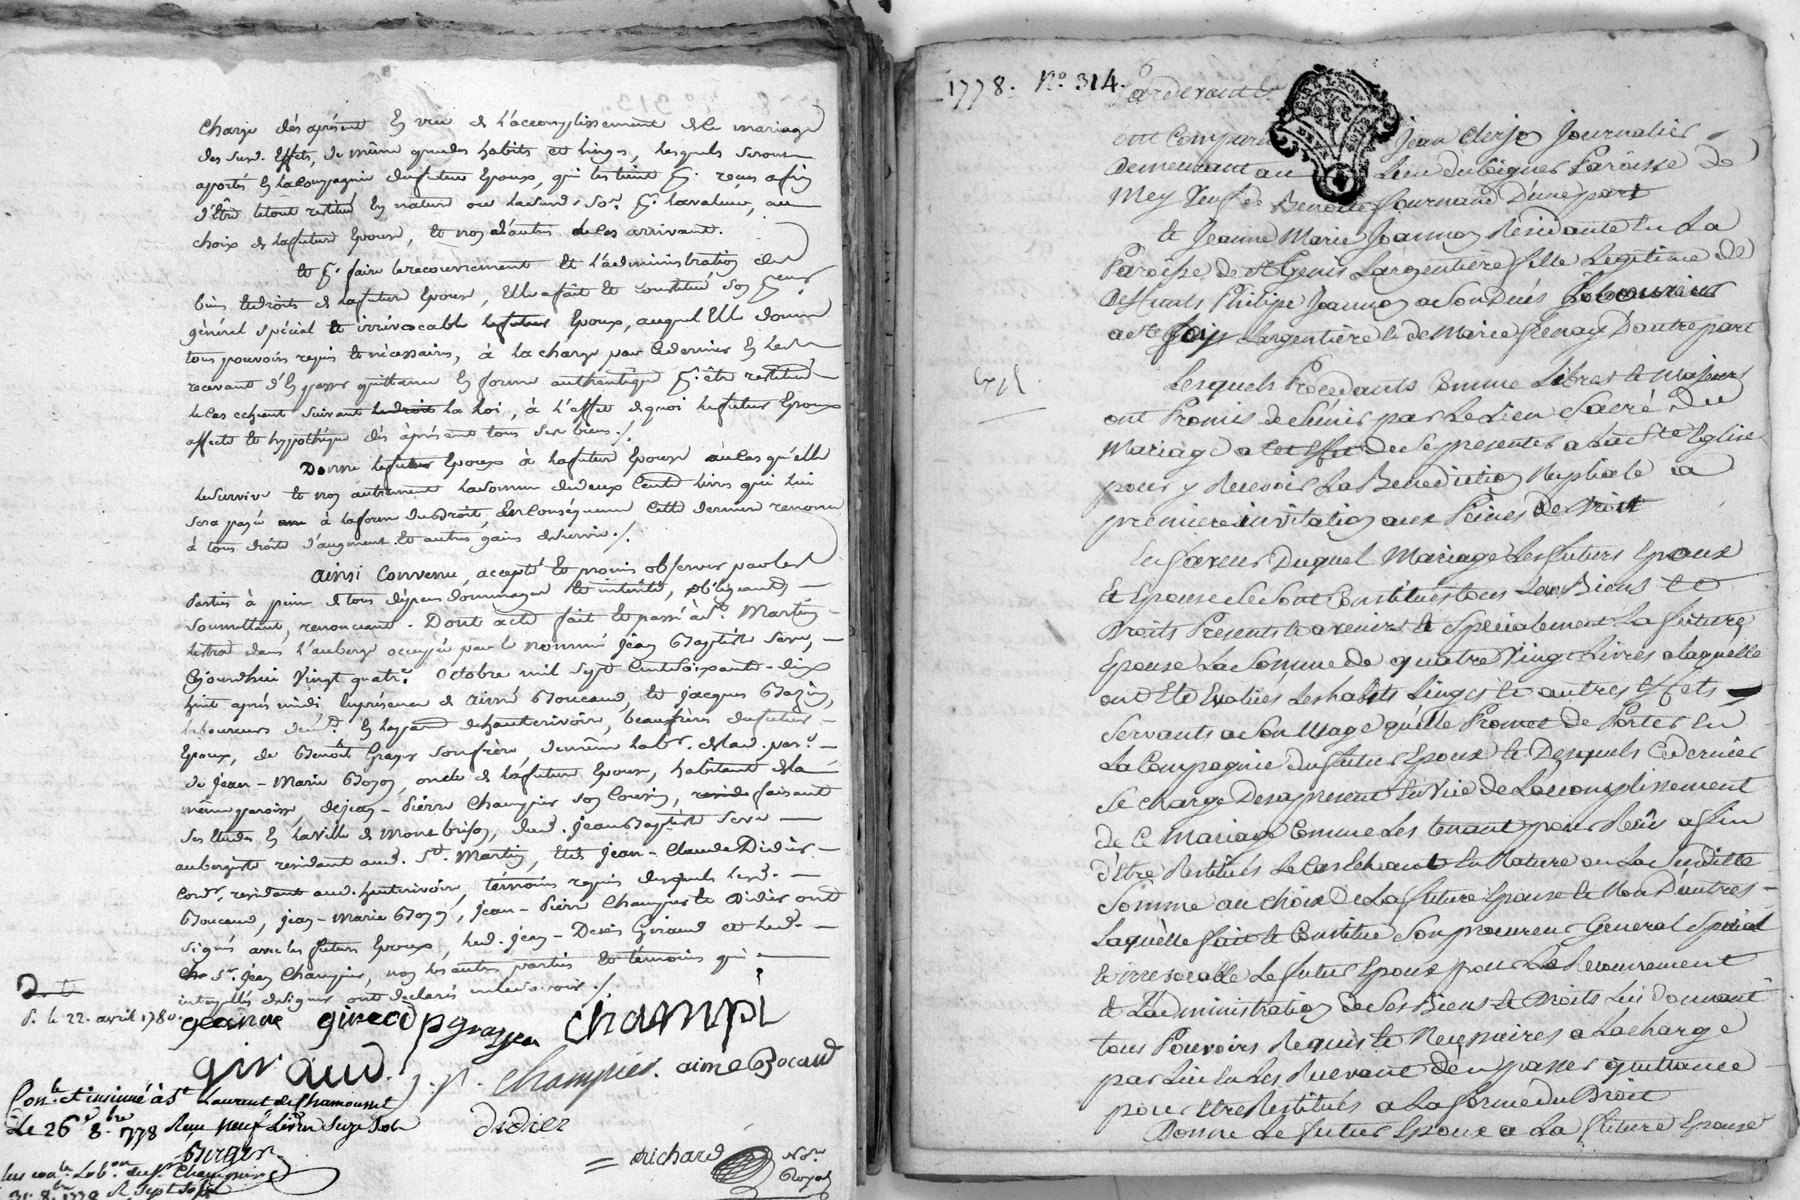 charge dès aprésent En vue de l'accomplissement dele mariage
des susd. Effets, de même que des habits et linges, lesquels seront
aportés En la Compagnie du futur Epoux, qui les tient Pr. recus afin
d'être letout restitué En nature ou laditte Soe. Pr. la valeur, au
choix de la future Epouse, et non d'autres le cas arrivant.
Et Pr. faire le recouvrement et l'administration des
biens et droits de la future Epouse, Elle a fait et constitué son Procr.
général spécial et irrévocable le futur Epoux, auquel Elle donne
tous pouvoirs requis et nécessaires, à la charge par ce dernier En les
recevant d'En passer quittance En forme authentique Pr. être restitué
le cas echeant suivant la loi, à l'effet de quoi le futur Epoux
affecte et hypothèque dès àprésent tous ses biens ./.
Donne le futur Epoux à la future Epouse au cas qu'elle
le survive et non autrement la somme de deux Cents livres qui lui
sera payée à la forme du droit, En Conséquence cette derniere renonce
à tous droits d'augment et autres gains de survie ./.
ainsi Convenu, accepté et promis observer par les
parties à peine de tous dépens dommages et intérêts, obligeants
soumettant, renonceant. Dont acte fait et passé à St. Martin
lestrat dans l'auberge occupée par le nommé jean Baptiste Serre,
Cejourdhui Vingt quatre. Octobre mil sept Cent soixante-dix
huit après midi En présence de aimé Boucaud, et jacques Bazin,
laboureurs demt. En la pard. de hauterivoire, beaufrères du futur
Epoux, de Benoît Grasse son frère, de même labr. de lad. parse.
de jean-Marie Bozon, oncle de la future Epouse, habitant de la
même paroisse, de jean-Pierre Champier son Cousin, faisant
ses Etudes En la ville de Montbrison, dud. jean Baptiste Serre
aubergiste residant aud. St. Martin, Et de jean-Claude Didier
Cordr. residant aud. hauterivoire, témoins requis desquels lesd.
Boucaud, jean-Marie Bozon, jean-Pierre Champier et Didier ont
signé avec les futurs Epoux, led. jean-Denis Giraud et led.
Sr. jean Champier, non les autres parties et témoins qui
interpellés de signer ont déclaré ne le savoir ./.
D. t.
S. le 22. avril 1780.
jeanne giraud p grasse Champi
giraud J. p. Champier. aimé Bocaud
Conle. et insinué à St Laurent de Chamousset
Le 26 8bre. 1778 Reçu neuf Livres Seize Sols
Burger
didier
richard Nore.
Royal
1778. No. 314.
Pardevant le
ont Comparu Jean Clerjon Journalier
Demeurant au Lieu du Viguer Paroisse de
Mey Veuf de Benoitte fournand D'une part
Et Jeanne Marie Joannon Residante En La
Paroisse de St Genis Largentière fille Legitime de
Deffunts Philipe Joannon a Son Decés
a St Genis Largentière Et de Marie Frenay D'autre part
Lesquels Procedants Comme Libres Et Majeurs
ont Promis de s'unir par Le Lien Sacré Du
Mariage a Cet Effet de Se presenter a La Ste Eglise
pour y Recevoir La Benediction Nuptiale a
premiere invitation aux Peines De Droit
En faveur Duquel Mariage Les futurs Epoux
Et Epouse Se Sont Constitués tous Leurs Biens Et
Droits Presents Et avenirs Et Specialement La future
Epouse La Somme de quatre Vingt Livres a laquelle
ont Eté Evalües Les habits Linges Et autres Effets
Servants a Son Usage quelle Promet de Porter En
La Compagnie du futur Epoux Et Desquels Ce dernier
Se charge Desapresent En Vüe de L'accomplissement
de Ce Mariage Comme Les tenant pour Reçûs afin
d'Etre Restitués Le Cas Echeant En Nature ou La Susditte
Somme au choix De La future Epouse Et Non D'autres
Laquelle fait Et Constitue Son procureur General Special
Et irrevocable Le futur Epoux pour Le Recouvrement
Et L'administration de Ses Biens Et Droits Lui Donnant
tous Pouvoirs Requis Et Necessaires a La charge
par Lui En Les Recevant d'En passer quittance
pour Etre Restitués a La forme du Droit
Donne Le futur Epoux a La future Epouse